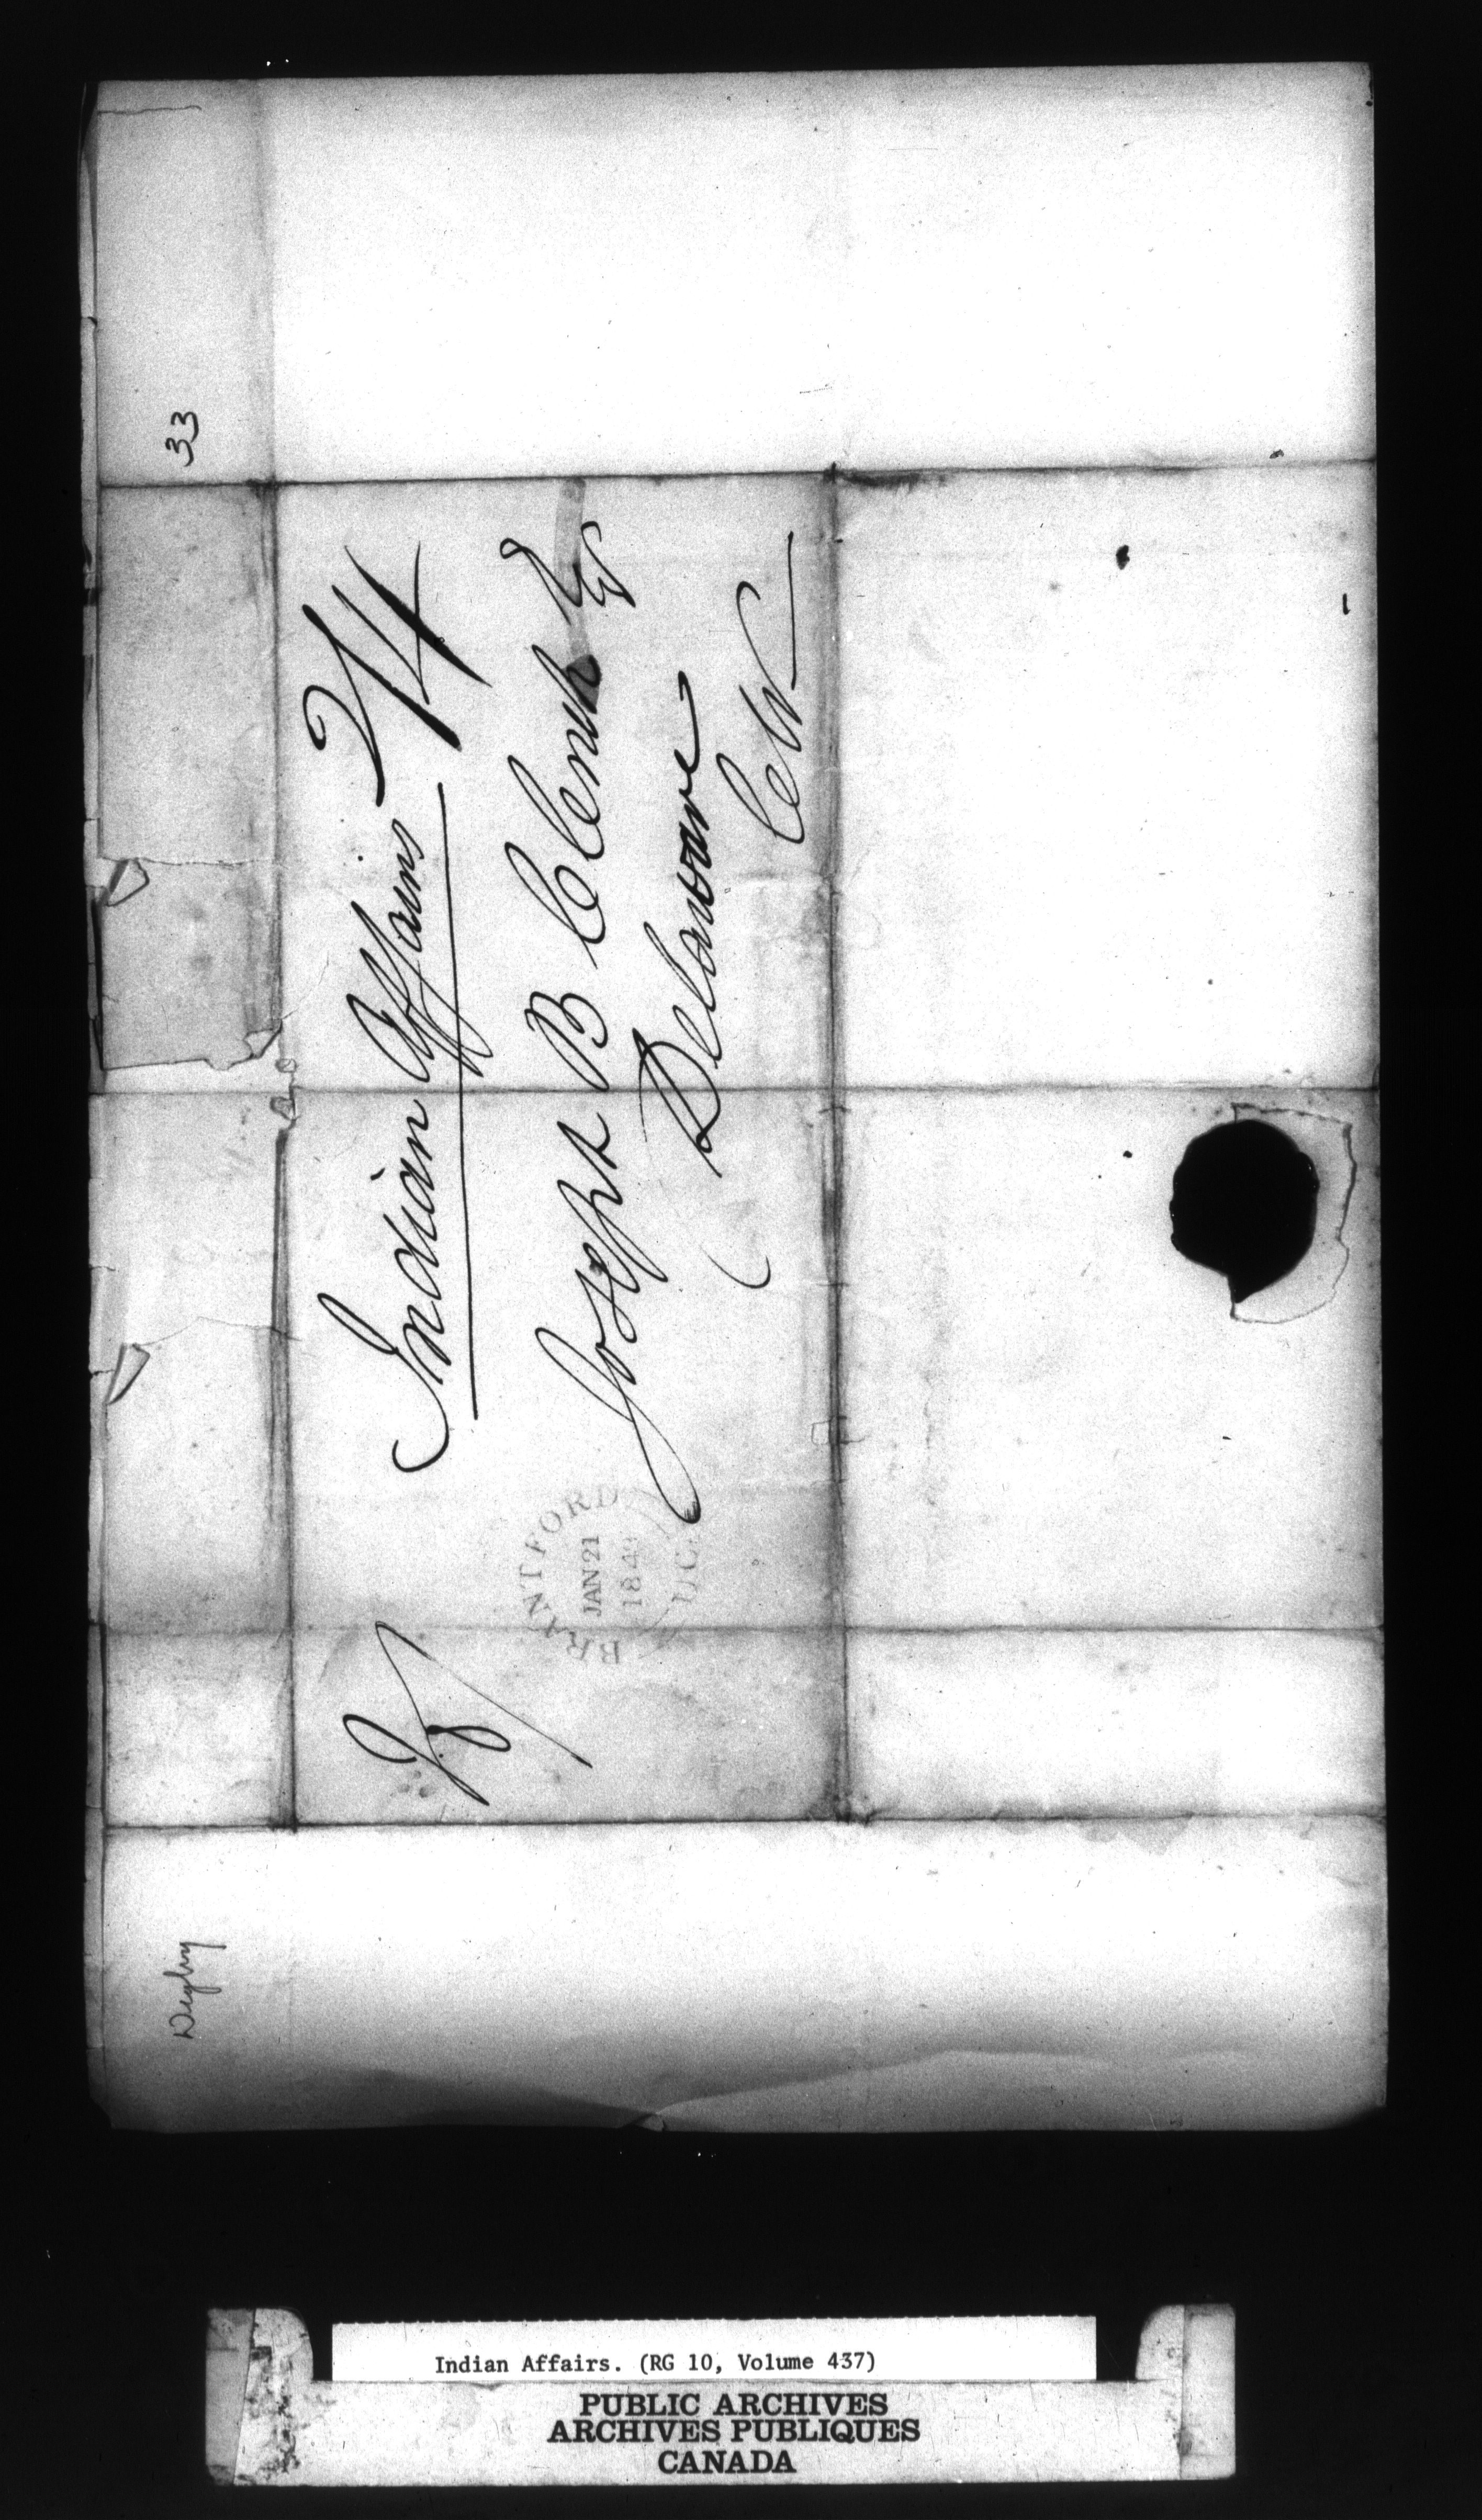 33
Indian Affairs
2/4
Joseph B Clench Esqr
Delaware
C W
BRANTFORD
JAN 21
184
U.C.
Digby
Indian Affairs. (RG 10, Volume 437)
PUBLIC ARCHIVES
ARCHIVES PUBLIQUES
CANADA